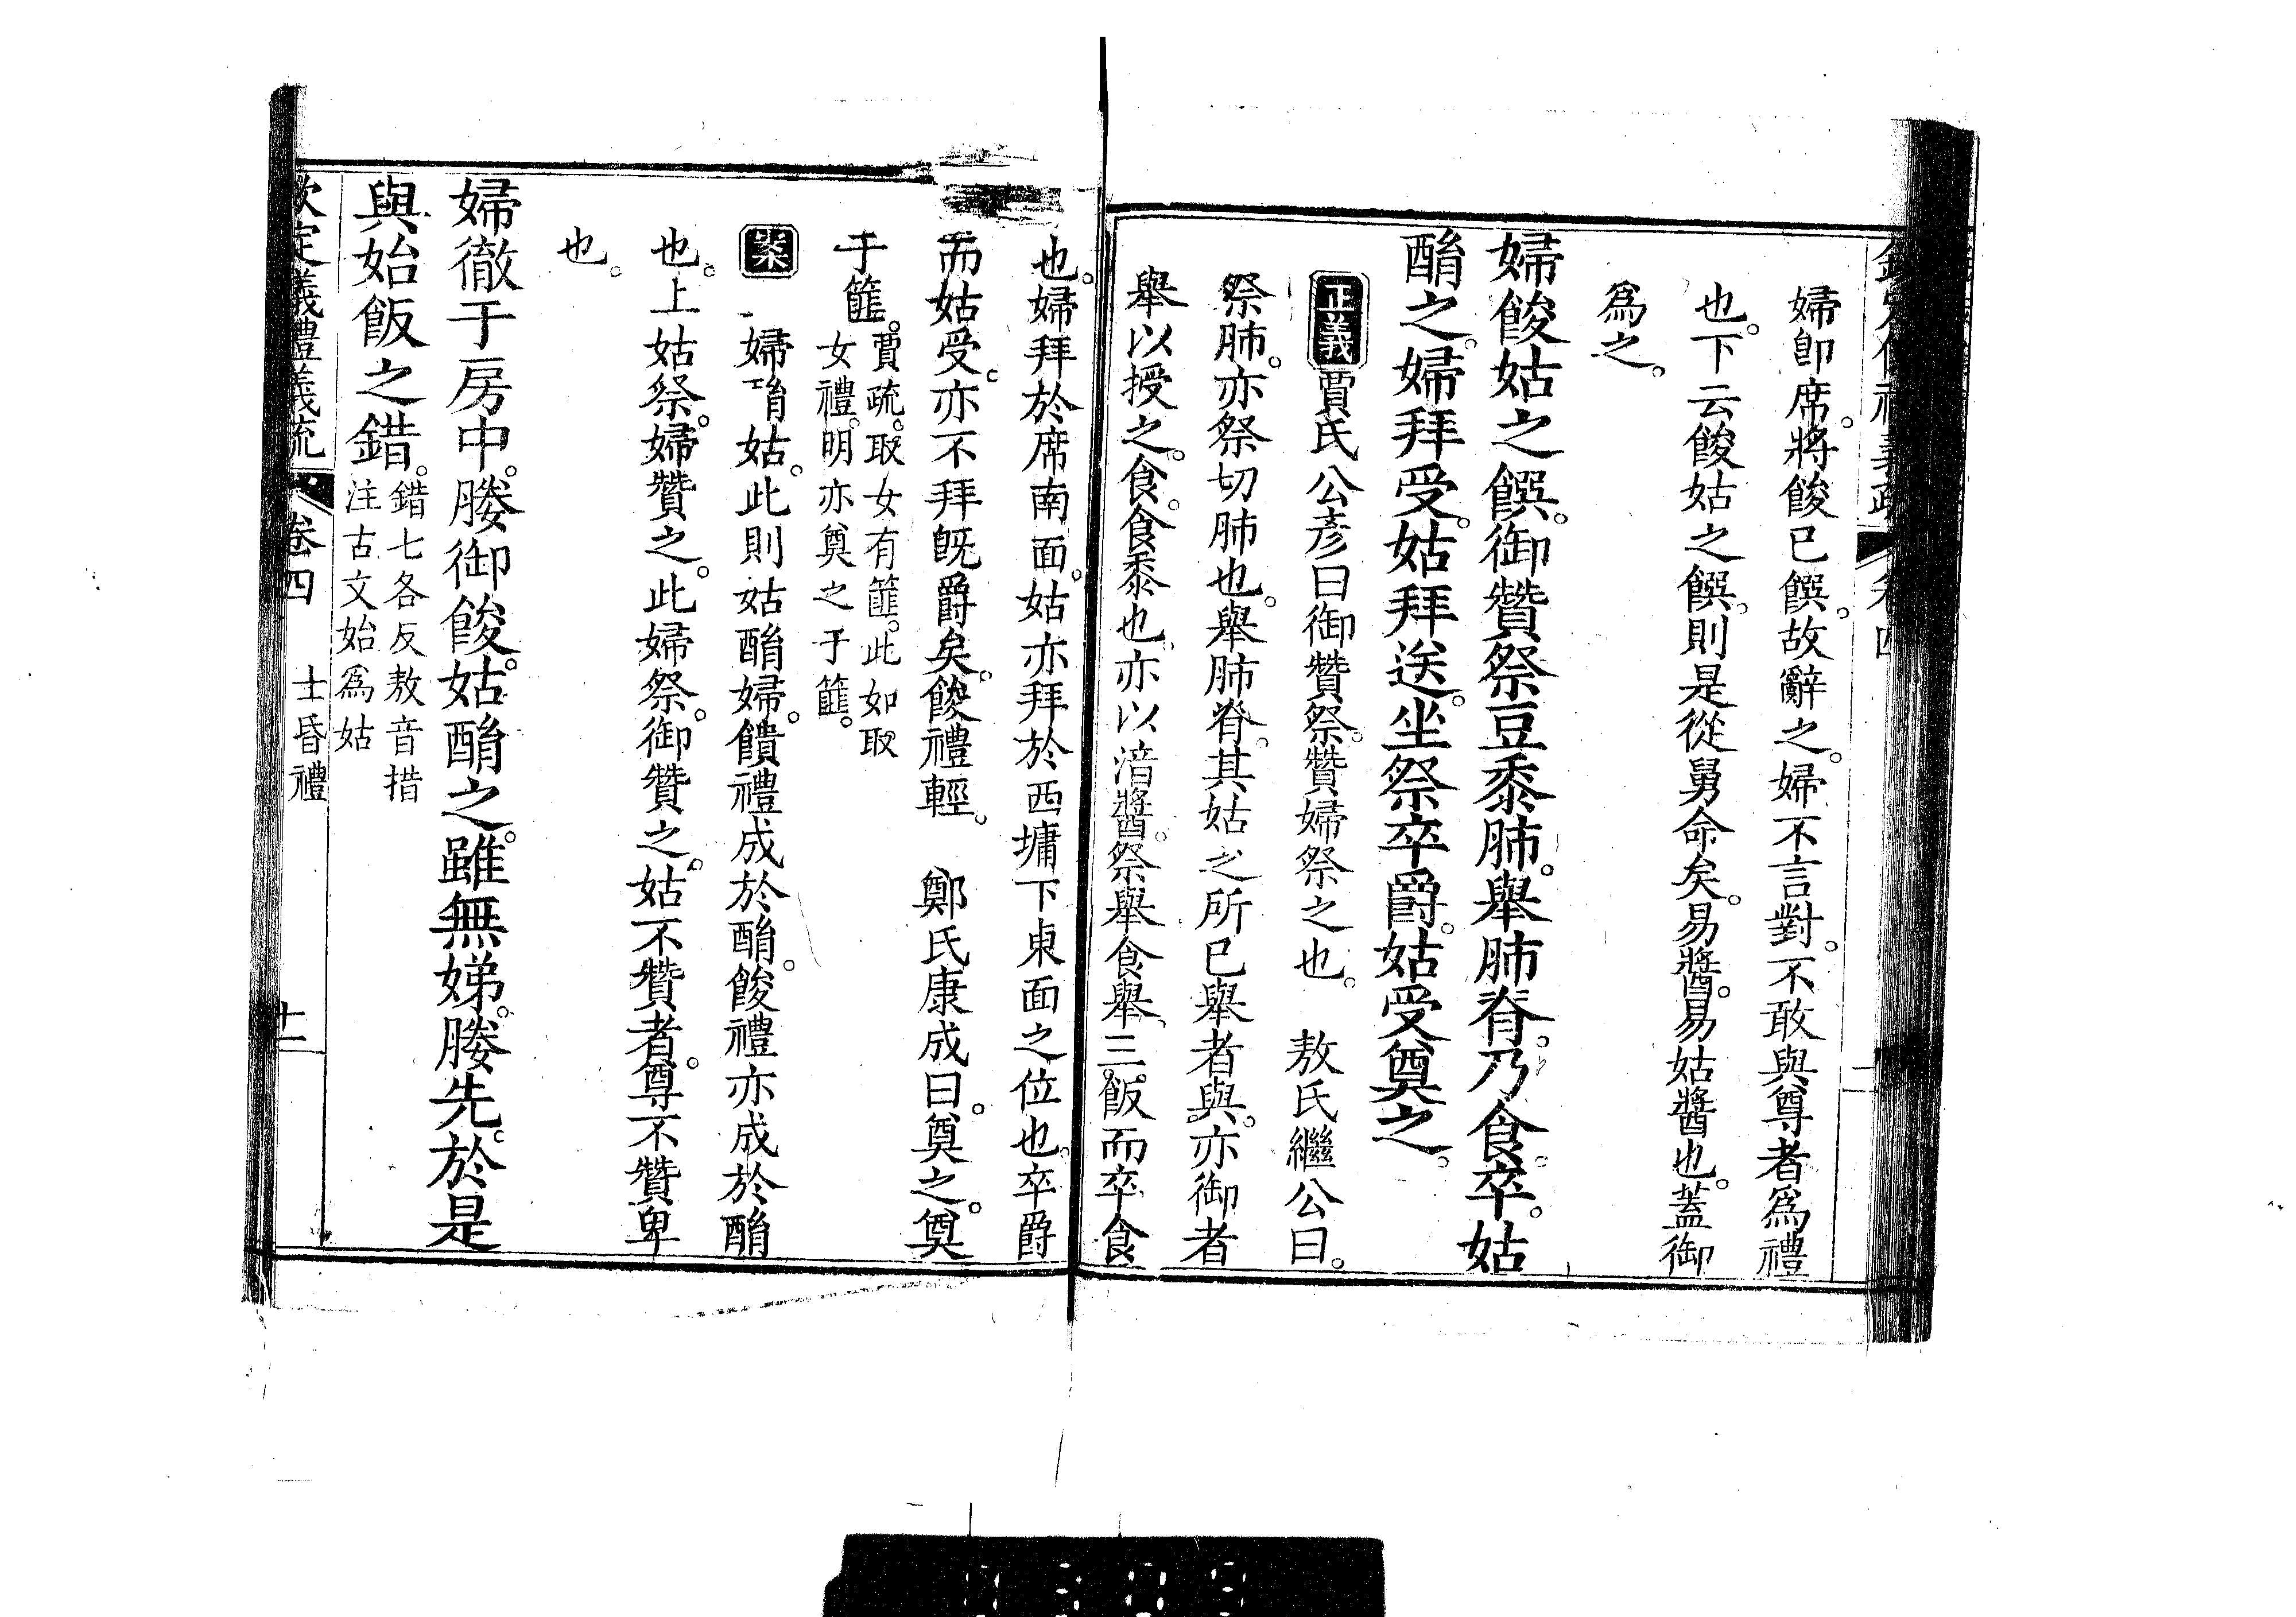 婦卽席。將餕已饌。故辭之。婦不言對。不敢與尊者爲禮
也。下云餕姑之饌。則是從舅命矣。易醬。易姑醬也。蓋御
爲之。
婦餕姑之饌。御贊祭豆黍肺。舉肺脊。乃食。卒。姑
酳之。婦拜受。姑拜送。坐祭卒爵。姑受奠之。
正義賈氏公彥曰御贊祭。贊婦祭之也。 敖氏繼公曰。
祭肺。亦祭切肺也。舉肺脊。其姑之所已舉者與。亦御者
舉以授之。食。食黍也。亦以湇醬。祭舉食舉。三飯而卒食
也。婦拜於席南面。姑亦拜於西墉下東面之位也。卒爵
而姑受。亦不拜旣爵矣。餕禮輕。 鄭氏康成曰。奠之。奠
于篚。賈疏。取女有篚。此如取
女禮。明亦奠之于篚。
案 婦酳姑。此則姑酳婦。饋禮成於酳。餕禮亦成於酳
也。上姑祭。婦贊之。此婦祭。御贊之。姑不贊者。尊不贊卑
也。
婦徹于房中。媵御餕。姑酳之。雖無娣。媵先。於是
與始飯之錯。錯七各反敖音措
注古文始爲姑
欽定儀禮義疏 卷四 士昏禮 十二